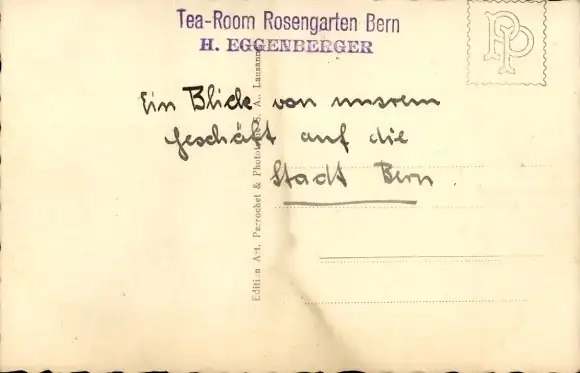 Tea-Room Rosengarten Bern
H. EGGENBERGER
Ein Blick von unsrem
Geschäft auf die
Stadt Bern.
Edition Art. Perrochet & Phototypie S. A., Lausanne